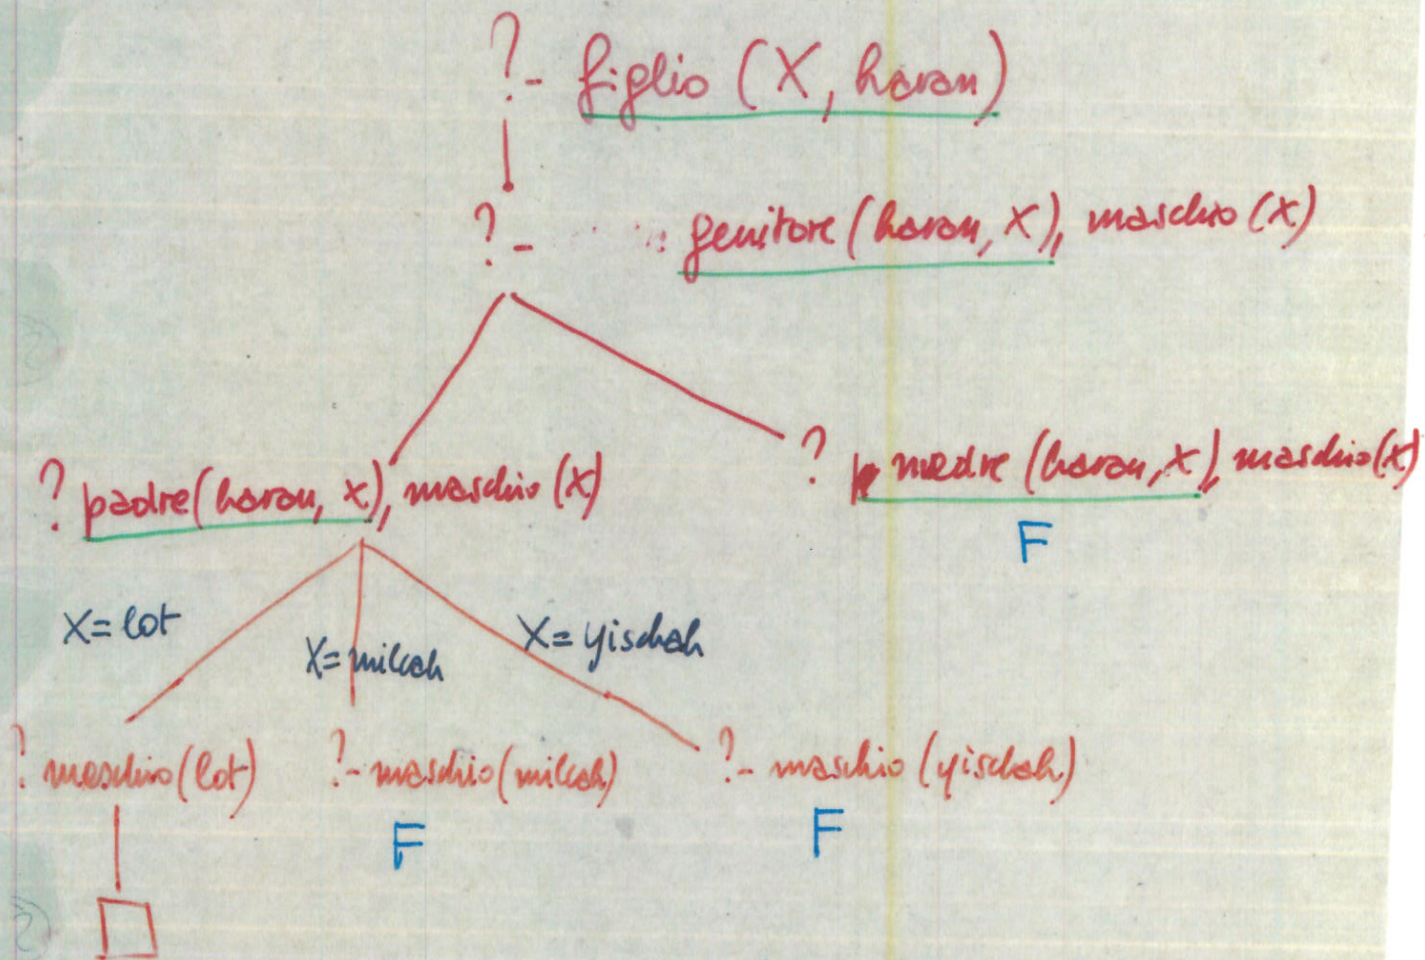 ?- figlio (X, haran)
?- genitore (haran, X), maschio (X)
? padre (haran, X), maschio (X)
? madre (haran, X), maschio (X)
F
X= lot
X= milcah
X= yischah
? maschio (lot)
?- maschio (milcah)
?- maschio (yischah)
F
F